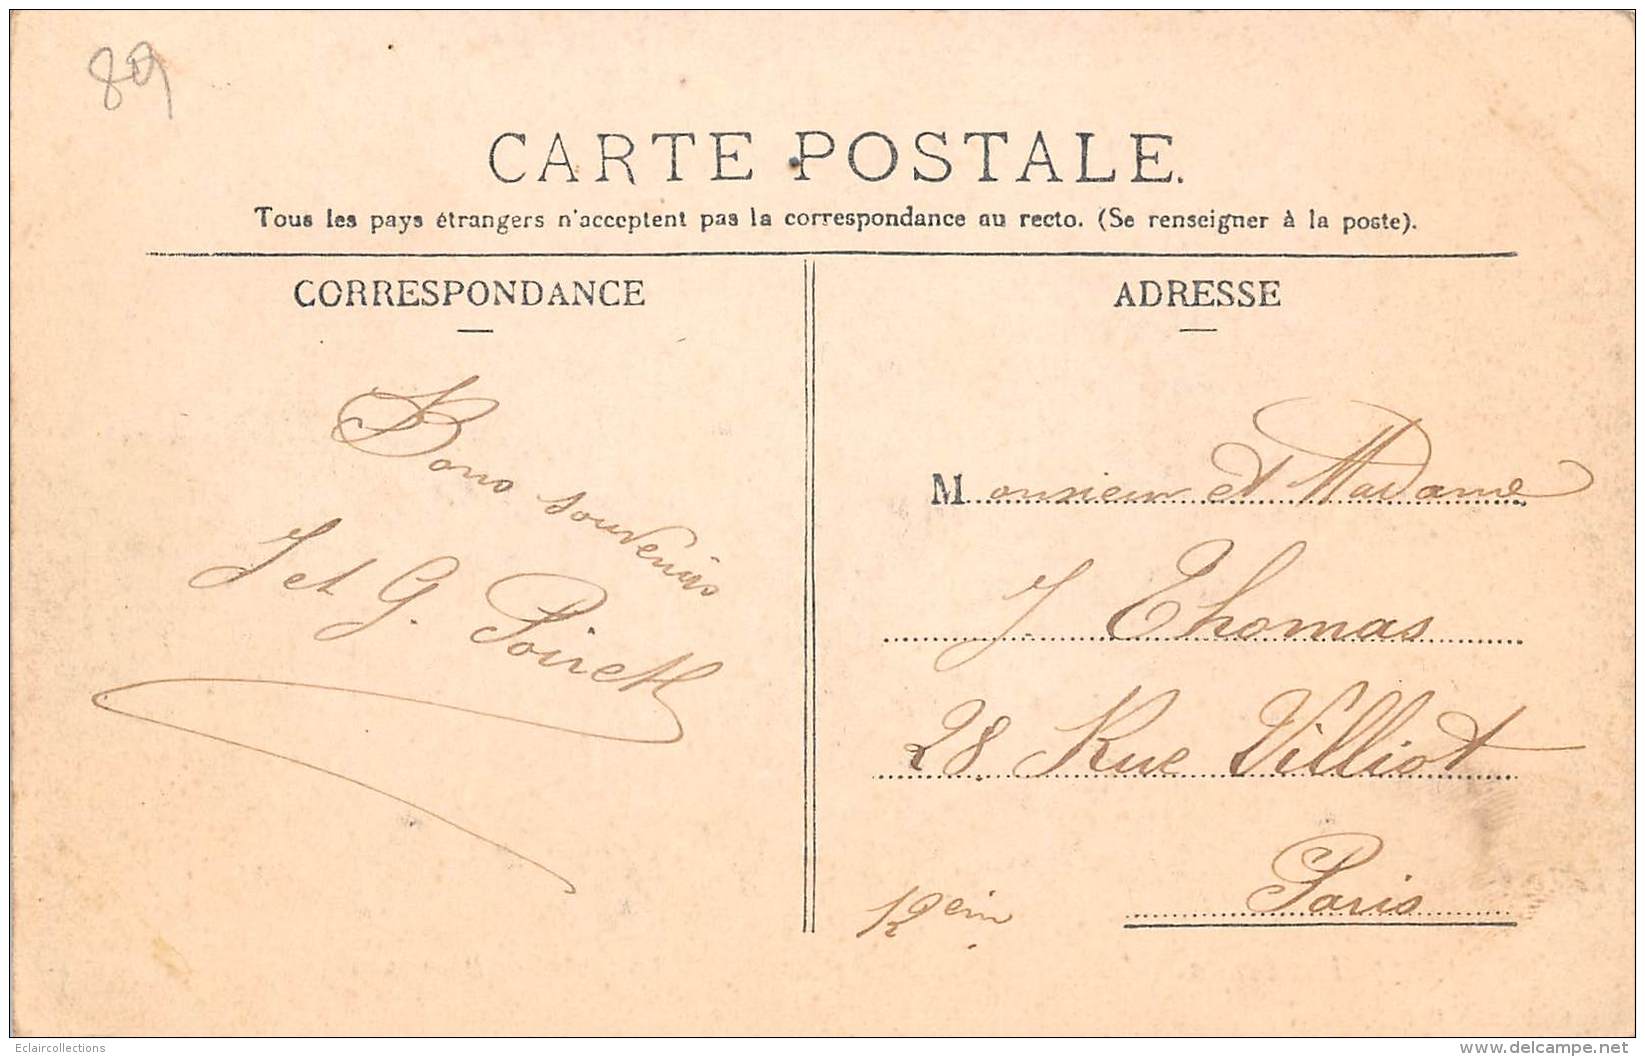 89
CARTE POSTALE.
Tous les pays étrangers n'acceptent pas la correspondance au recto. (Se renseigner à la poste).
CORRESPONDANCE
Bons souvenirs
J et G. Poirett
ADRESSE
Monsieur et Madame
J. Thomas
28 Rue Villiot
Paris
12eim
Eclaircollections
www.delcampe.net